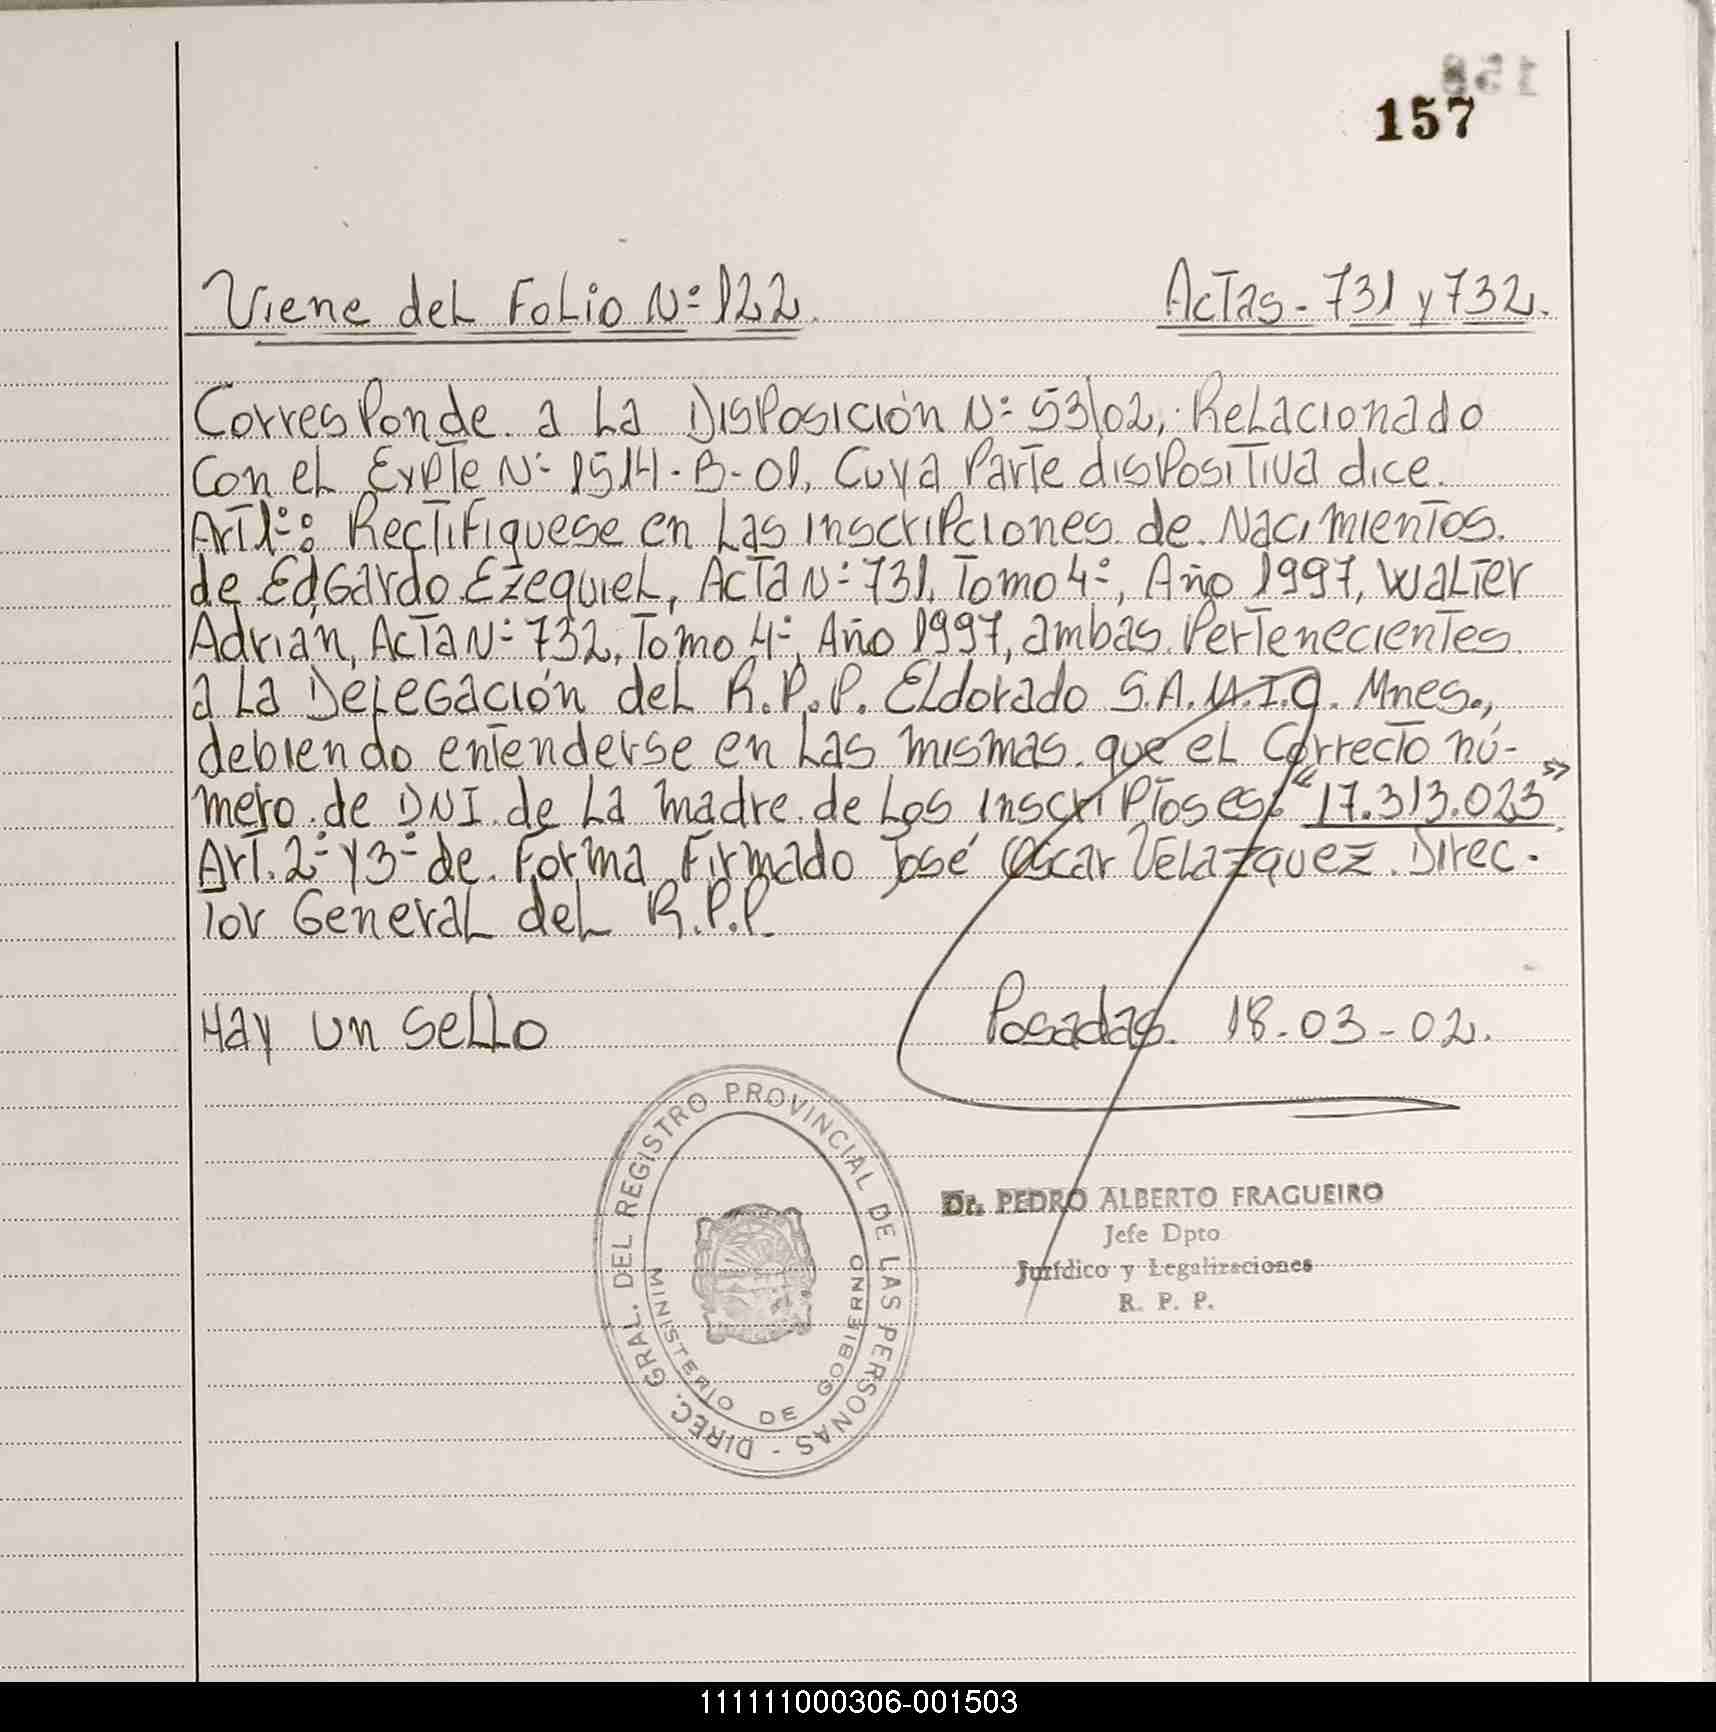 157
Viene del Folio N:122. Actas-731 y 732.
Corresponde a la Disposición N: 53/02, Relacionado
con el Expte N: 1514-B-01, Cuya Parte dispositiva dice.
Art 1:: Rectifiquese en las inscripciones de Nacimientos.
de Edgardo Ezequiel, Acta N: 731, Tomo 4:, Año 1997, Walter
Adrián, Acta N: 732, Tomo 4:, Año 1997, ambas Pertenecientes
a la Delegación del R.P.P. Eldorado S.A.M.I.C. Mnes.,
debiendo entenderse en las mismas que el Correcto nú-
mero de DNI de la madre de los inscriptos es: "17.313.023".
Art. 2: y 3: de Forma Firmado José Oscar Velazquez. Direc-
tor General del R.P.P.
Hay un sello Posadas. 18-03-02.
DIREC. GRAL. DEL REGISTRO PROVINCIAL DE LAS PERSONAS -
MINISTERIO DE GOBIERNO
Dr. PEDRO ALBERTO FRAGUEIRO
Jefe Dpto
Jurídico y Legalizaciones
R. P. P.
111111000306-001503